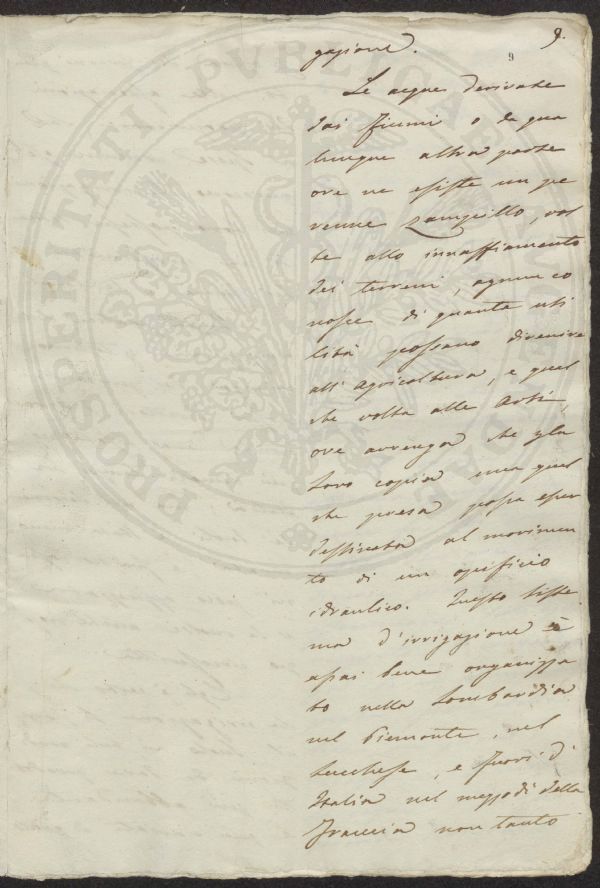 9.
9
gazione.
Le acque derivate
dai fiumi o da qua
lunque altra parte
ove ne esiste un pe
renne zampillo, vol
te allo innaffiamento
dei terreni, ognun co
nosce di quanta uti
lità possano divenire
all'agricoltura, e qual
che volta alle Arti,
ove avvenga che
loro copia una qual
che presa possa esser
destinata al movimen
to di un opificio
idraulico. Questo siste
ma d'irrigazione è
assai bene organizza
to nella Lombardia
nel Piemonte, nel
Lucchese, e fuori d'
Italia nel mezzodì della
Francia non tanto
PROSPERITATI PVBLICAE AVGENDAE